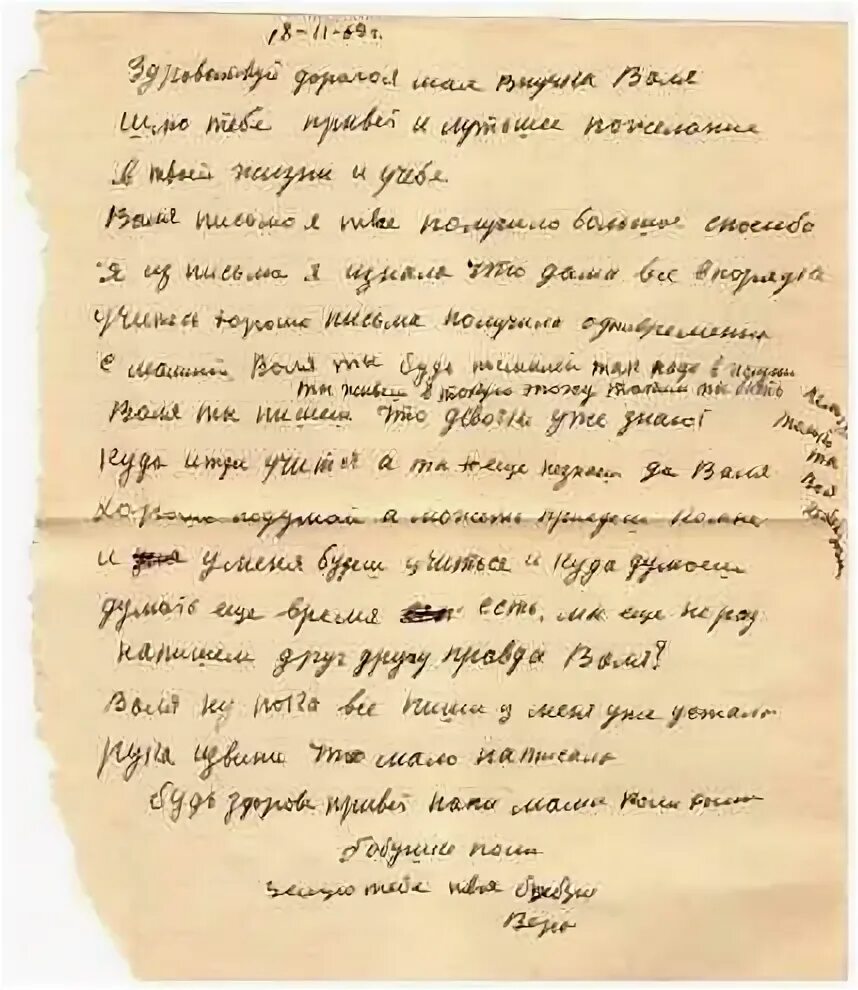 18-11-69 г.
Здровствуй дорогоя моя Внучка Валя
Шлю тебе привет и лутьшее пожелание
В твоей жизни и учебе
Валя письмо я твое получило большое спосибо
я из письма я узнала что дома все впорядке
учитесь хорошо письма получила одновременно
с мамией Валя ты будь так
ты живеш в
Валя ты пишеш что девочки уже знают
куда итти учится а ты еще незнаеш да Валя
Хорошо подумай а может приедеш комне
и уменя будеш учиться и куда думаеш
думать еще время есть, мы еще не раз
напишем друг другу правда Валя?
Валя ну пока все пиши у меня уже устала
рука извини что мало написала
будь здорова привет папи мами Коли
бабушке поли
целую тебя твоя бабуш
Вера
только
ты
Валя